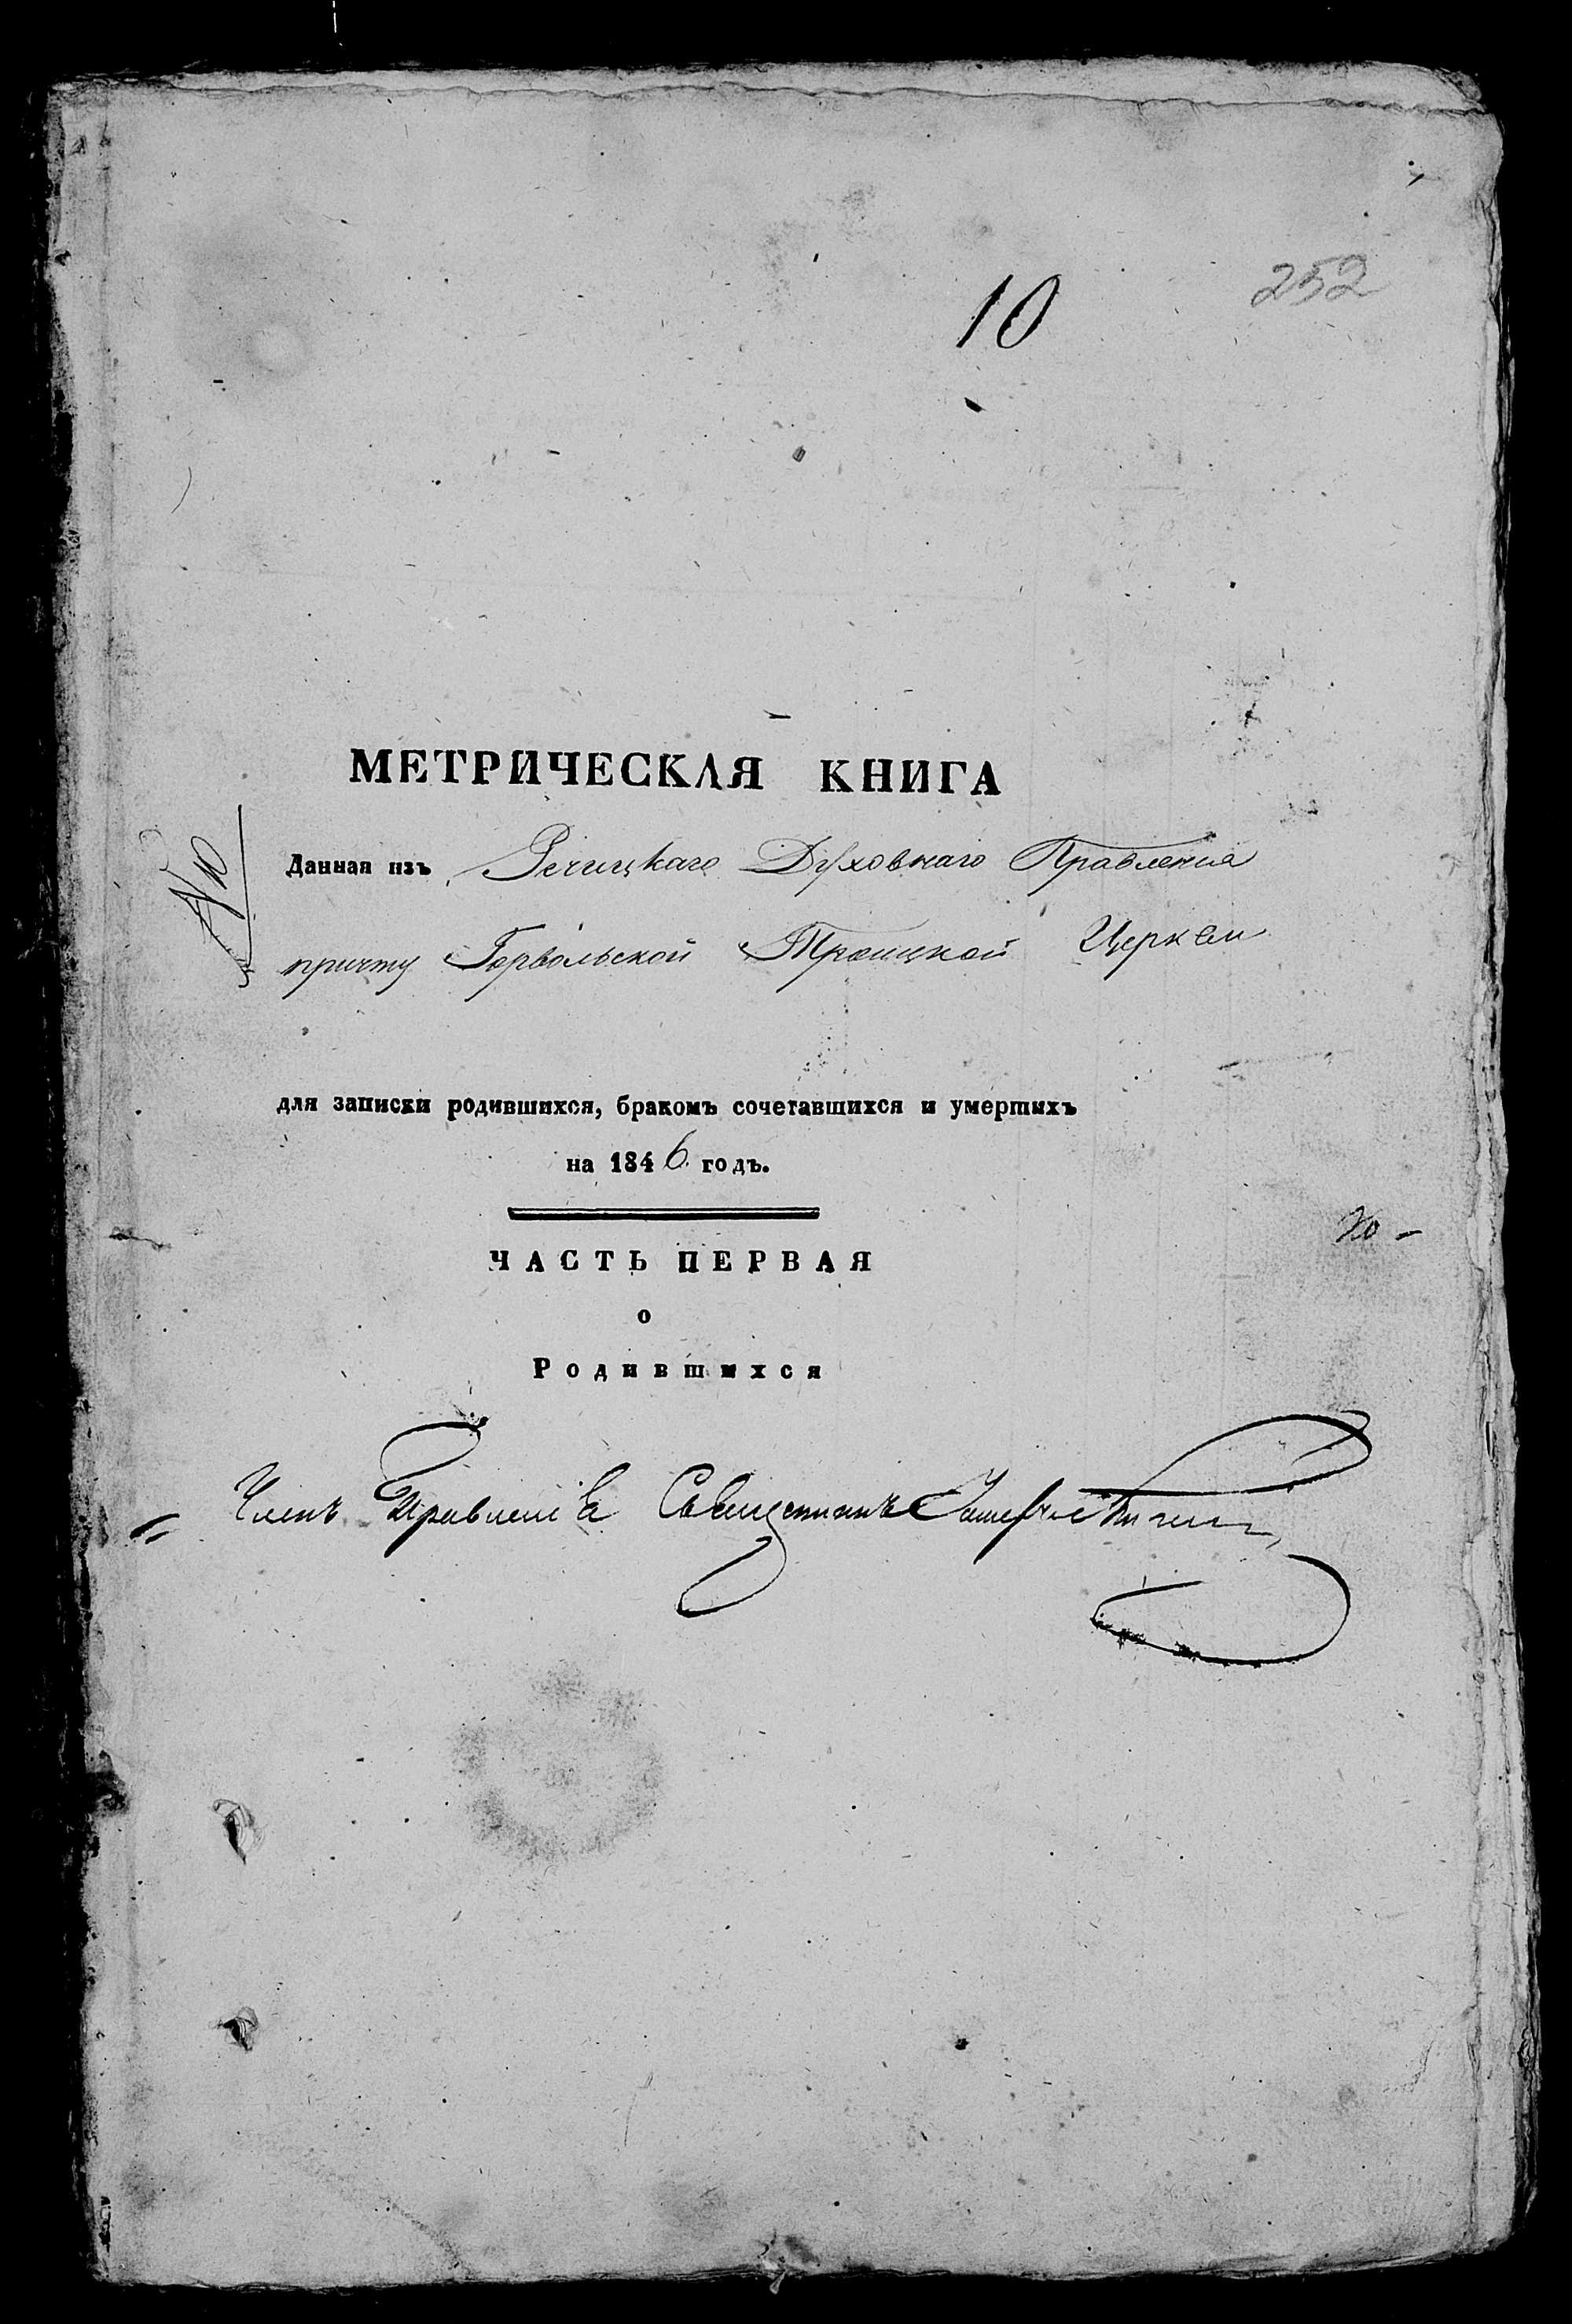 252
10
МЕТРИЧЕСКАЯ КНИГА
Данная изъ Речицкаго Духовнаго Правления
причту Горвольской Троицкой Церкви
для записки родившихся, бракомъ сочетавшихся и умершихъ
на 1846 годъ.
ЧАСТЬ ПЕРВАЯ
о
Родившихся
Членъ Правления Священникъ